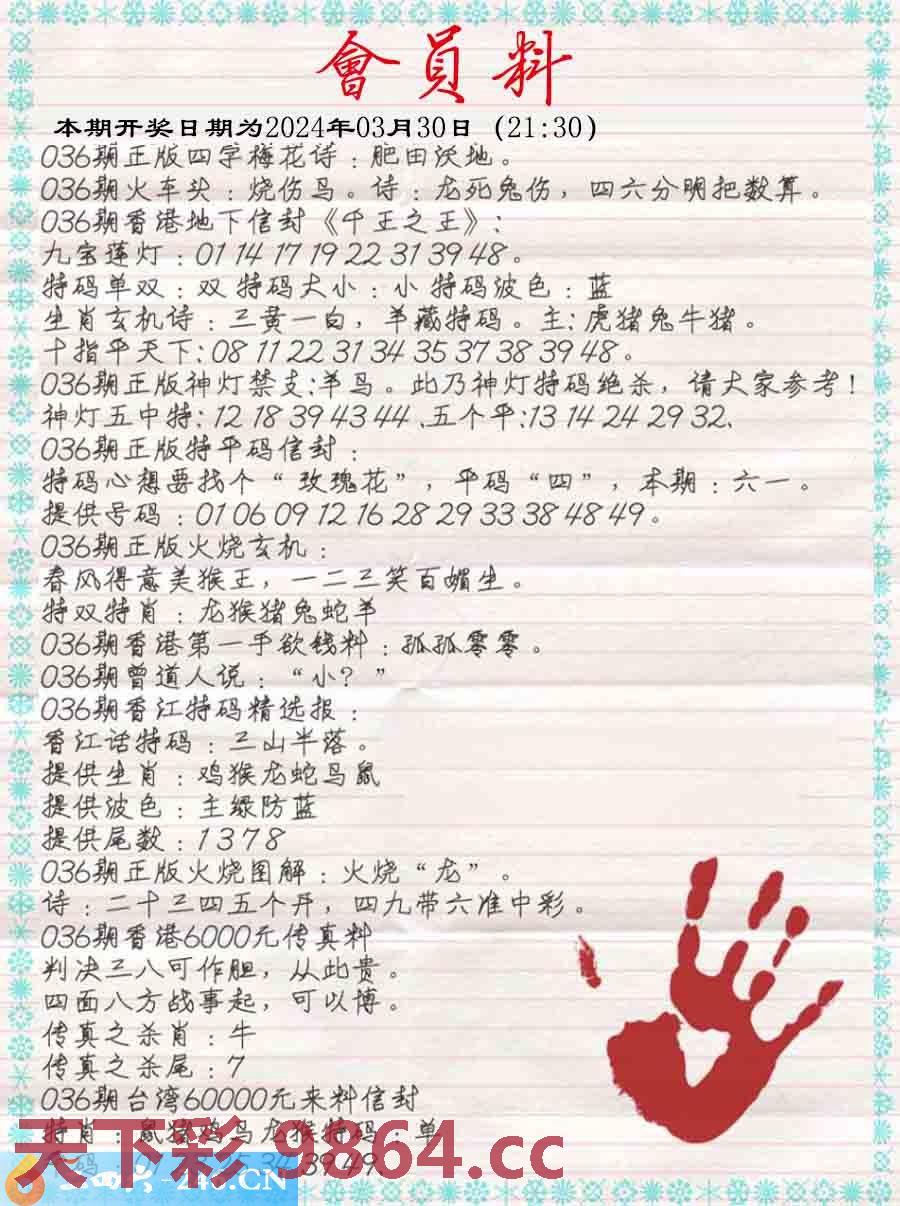 會員料
本期开奖日期为2024年03月30日（21:30）
036期正版四字梅花诗：肥田沃地。
036期火车头：烧伤鸟。诗：龙死兔伤，四六分明把数算。
036期香港地下信封《千王之王》：
九宝莲灯：01 14 17 19 22 31 39 48。
特码单双：双 特码大小：小 特码波色：蓝
生肖玄机诗：三黄一白，羊藏特码。主：虎猪兔牛猪。
十指平天下：08 11 22 31 34 35 37 38 39 48。
036期正版神灯禁支：羊鸟。此乃神灯特码绝杀，请大家参考！
神灯五中特：12 18 39 43 44 .五个平：13 14 24 29 32.
036期正版特平码信封：
特码心想要找个“玫瑰花”，平码“四”，本期：六一。
提供号码：01 06 09 12 16 28 29 33 38 48 49。
036期正版火烧玄机：
春风得意美猴王，一二三笑百媚生。
特双特肖：龙猴猪兔蛇羊
036期香港第一手欲钱料：孤孤零零。
036期曾道人说：“小？”
036期香江特码精选报：
香江话特码：三山半落。
提供生肖：鸡猴龙蛇鸟鼠
提供波色：主绿防蓝
提供尾数：1 3 7 8
036期正版火烧图解：火烧“龙”。
诗：二十三四五个开，四九带六准中彩。
036期香港6000元传真料
判决三八可作胆，从此贵。
四面八方战事起，可以博。
传真之杀肖：牛
传真之杀尾：7
036期台湾60000元来料信封
特肖：鼠猪鸡鸟龙猴特码：单
34 39 49.
天下彩 9864.cc
-246.CN